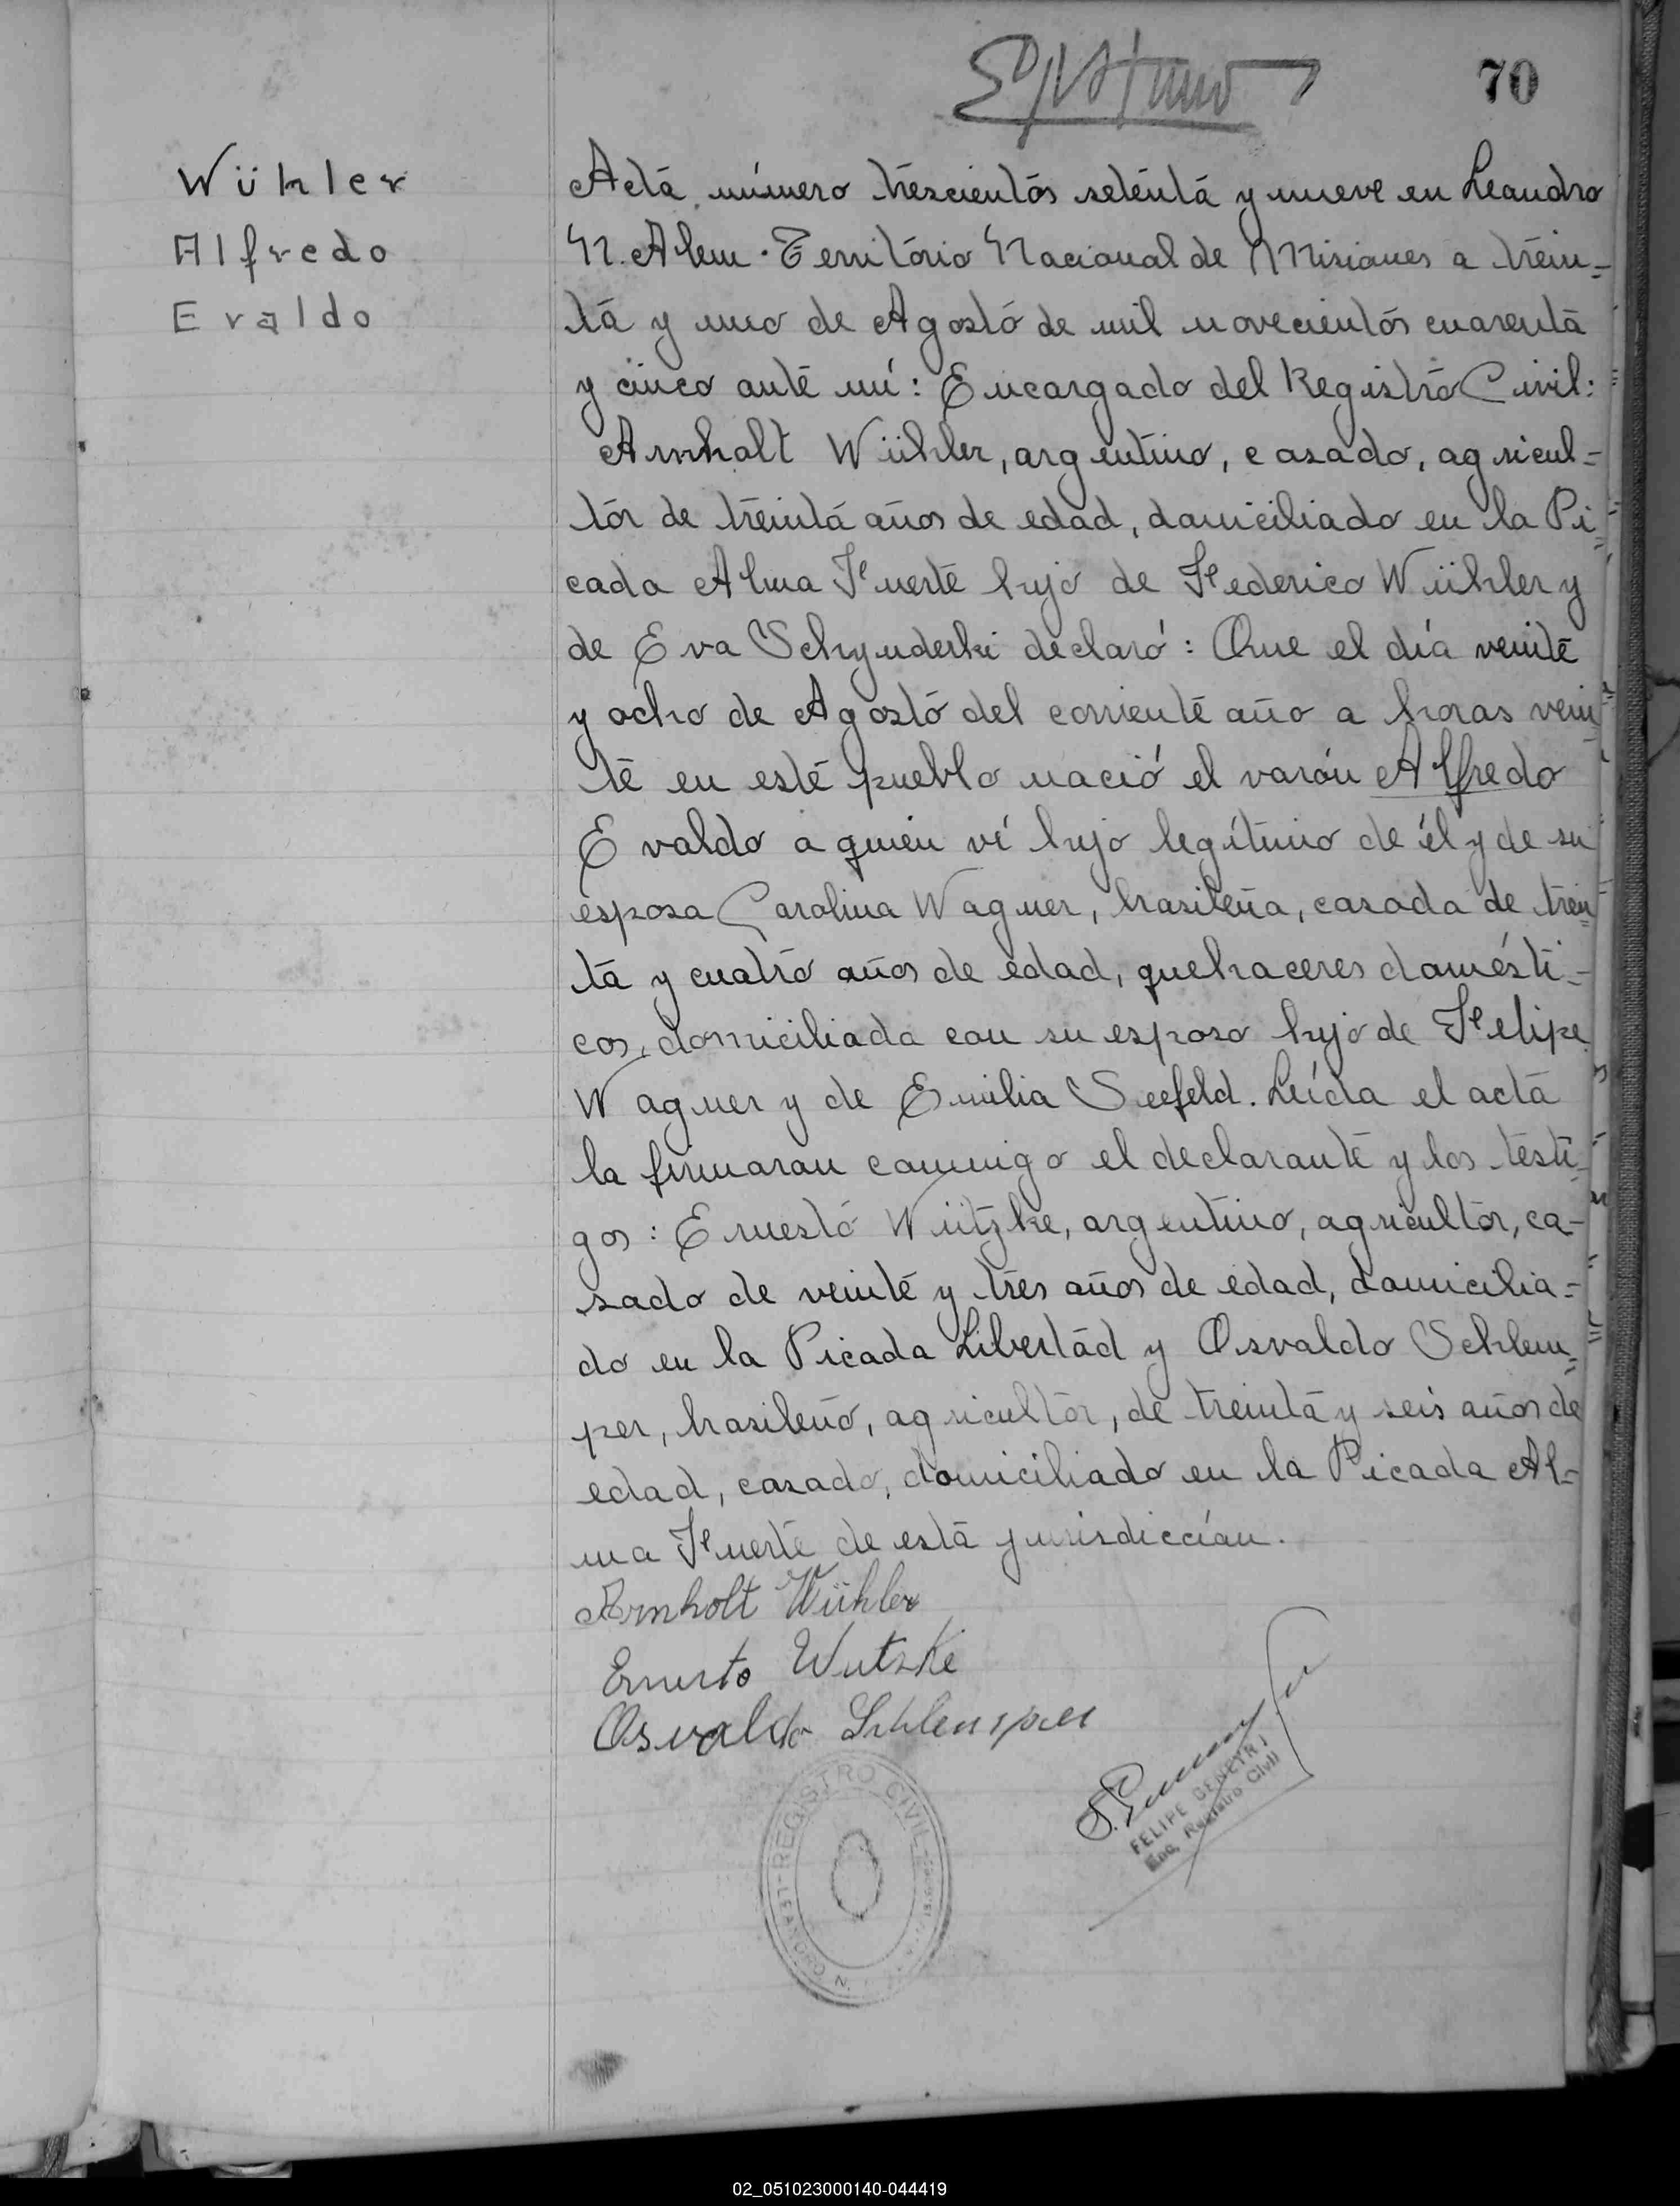 70
Wühler
Alfredo
Evaldo
Acta número trescientos setenta y nueve en Leandro
N. Alem. Território Nacional de Misiones a trein=
ta y uno de Agosto de mil novecientos cuarenta
y cinco ante mí: Encargado del Registro Civil:
Arnholt Wühler, argentino, casado, agricul=
tor de treinta años de edad, domiciliado en la Pi=
cada Alma Fuerte hijo de Federico Wühler y
de Eva Schynderki declaró: Que el día veinte
y ocho de Agosto del corriente año a horas vein=
te en este pueblo nació el varón Alfredo
Evaldo a quien ví hijo legítimo de él y de su
esposa Carolina Wagner, brasileña, casada de trein=
ta y cuatro años de edad, quehaceres domésti=
cos, domiciliada con su esposo hijo de Felipe
Wagner y de Emilia Seefeld. Leída el acta
la firmaran conmigo el declarante y los testi=
gos: Ernesto Wützke, argentino, agricultor, ca=
sado de veinte y tres años de edad, domicilia=
do en la Picada Libertad y Osvaldo Schlem=
per, brasileño, agricultor, de treinta y seis años de
edad, casado, domiciliado en la Picada Al=
ma Fuerte de esta jurisdicción.
Arnholt Wühler
Ernesto Wutzke
Osvaldo Schlemper
FELIPE DEMETRI
Enc. Registro Civil
REGISTRO CIVIL
LEANDRO N.
02_051023000140-044419